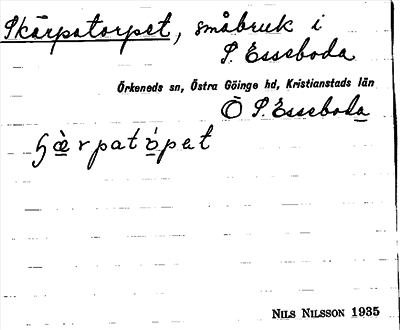 Skärpatorpet, småbruk i
S. Esseboda
Örkeneds sn, Östra Göinge hd, Kristianstads län
Ö S. Esseboda
ɧæ̀rpatòpet
NILS NILSSON 1935